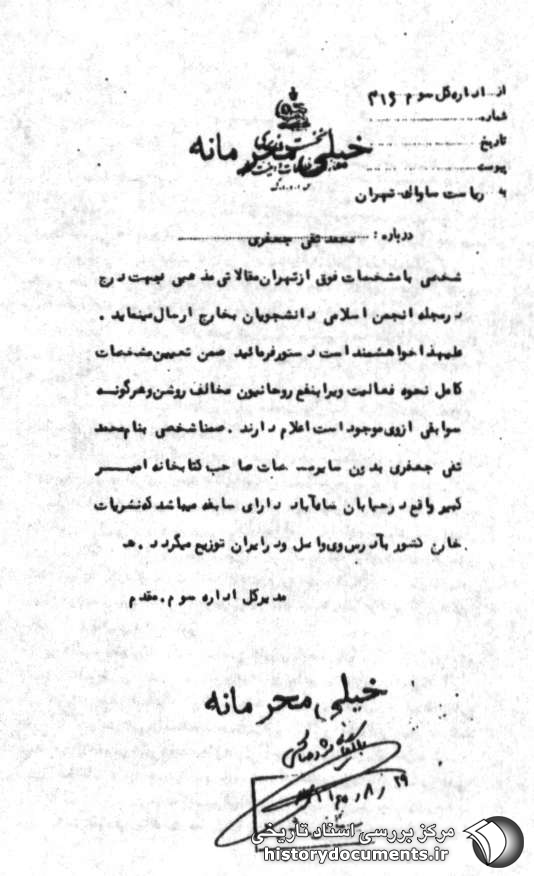 از اداره کل سوم ۳۱۶
شماره
تاریخ
پیوست
به ریاست ساواک تهران
نخست وزیری
خیلی محرمانه
درباره : محمد تقی جعفری
شخصی بامشخصات فوق ازتهران مقالاتی مذهبی بجهت درج
درمجله انجمن اسلامی دانشجویان بخارج ارسال مینماید .
علیهذا خواهشمند است دستورفرمائید ضمن تعیین مشخصات
کامل نحوه فعالیت ویرا بنفع روحانیون مخالف روشن وهرگونه
سوابقی ازوی موجود است اعلام دارند . ضمنا شخصی بنام محمد
تقی جعفری بدون سایرمشخصات صاحب کتابخانه امیر
کبیر واقع درخیابان شاه آباد دارای سابقه میباشد که نشریات
خارج کشور بآدرس وی واصل ودرایران توزیع میگردد . ه
مدیرکل اداره سوم . مقدم
خیلی محرمانه
۲۹ ر ۸ ر
مرکز بررسی اسناد تاریخی
historydocuments.ir